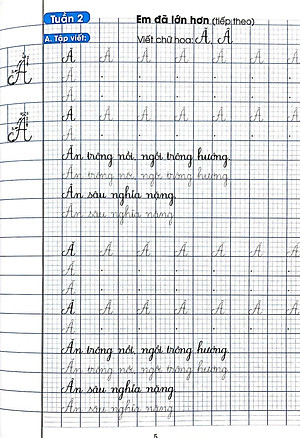 Tuần 2 Em đã lớn hơn (tiếp theo)
A. Tập viết: Viết chữ hoa: Ă, Â
Ă Ă Ă Ă Ă Ă Ă
Ă
Â Â Â Â Â Â Â
Â
Ăn trông nồi, ngồi trông hướng.
Ăn trông nồi, ngồi trông hướng.
Ân sâu nghĩa nặng.
Ân sâu nghĩa nặng.
Ă Ă Ă Ă Ă Ă Ă
Ă
Â Â Â Â Â Â Â
Â
Ăn trông nồi, ngồi trông hướng.
Ăn trông nồi, ngồi trông hướng.
Ân sâu nghĩa nặng.
Ân sâu nghĩa nặng.
5